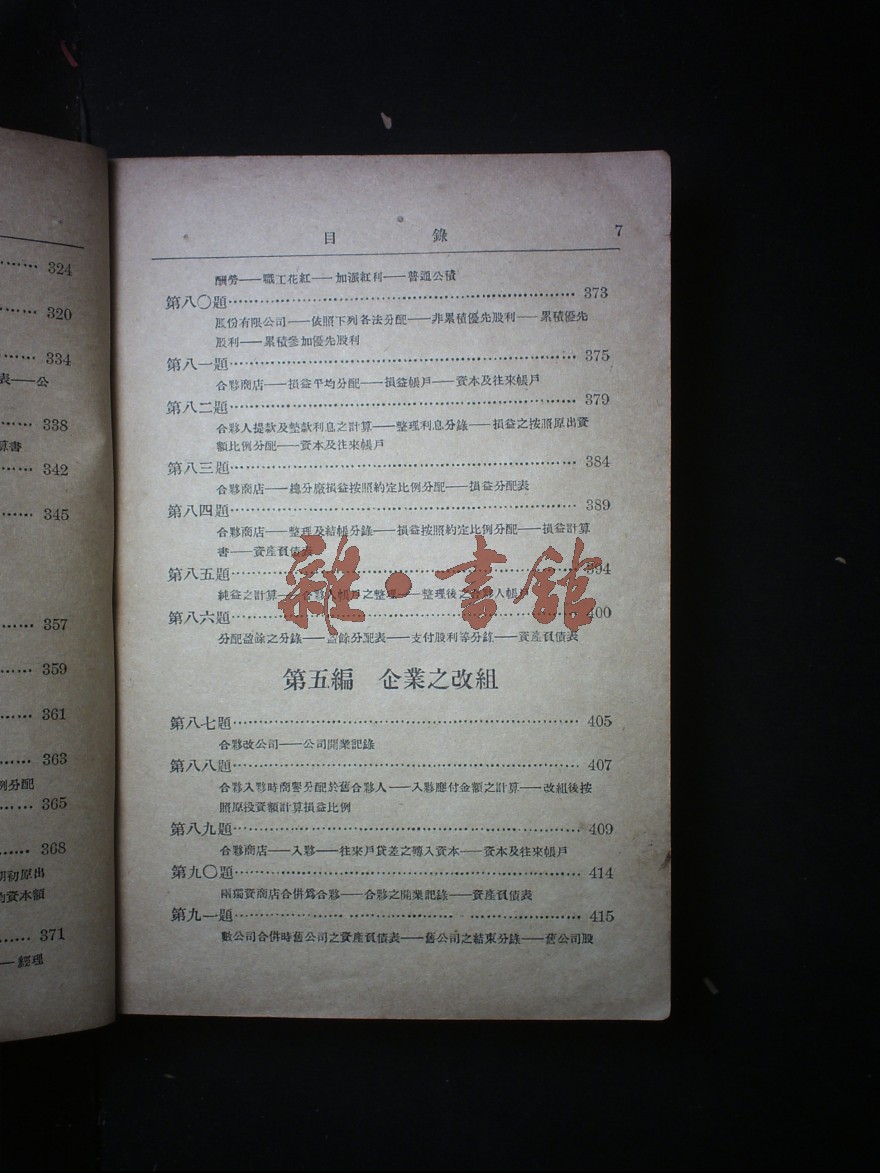 324
320
334
表——公
338
算書
342
345
357
359
361
363
例分配
365
368
期初原出
均資本額
371
——經理
目 錄 7
酬勞——職工花紅——加派紅利——普通公積
第八〇題 373
股份有限公司——依照下列各法分配——非累積優先股利——累積優先
股利——累積參加優先股利
第八一題 375
合夥商店——損益平均分配——損益帳戶——資本及往來帳戶
第八二題 379
合夥人提款及墊款利息之計算——整理利息分錄——損益之按照原出資
額比例分配——資本及往來帳戶
第八三題 384
合夥商店——總分廠損益按照約定比例分配——損益分配表
第八四題 389
合夥商店——整理及結帳分錄——損益按照約定比例分配——損益計算
書——資產負債表
第八五題 394
純益之計算——合夥人帳戶之整理——整理後之合夥人帳戶
第八六題 400
分配盈餘之分錄——盈餘分配表——支付股利等分錄——資產負債表
雜·書館
第五編 企業之改組
第八七題 405
合夥改公司——公司開業記錄
第八八題 407
合夥入夥時商譽分配於舊合夥人——入夥應付金額之計算——改組後按
照原投資額計算損益比例
第八九題 409
合夥商店——入夥——往來戶貸差之轉入資本——資本及往來帳戶
第九〇題 414
兩獨資商店合併爲合夥——合夥之開業記錄——資產負債表
第九一題 415
數公司合併時舊公司之資產負債表——舊公司之結束分錄——舊公司股